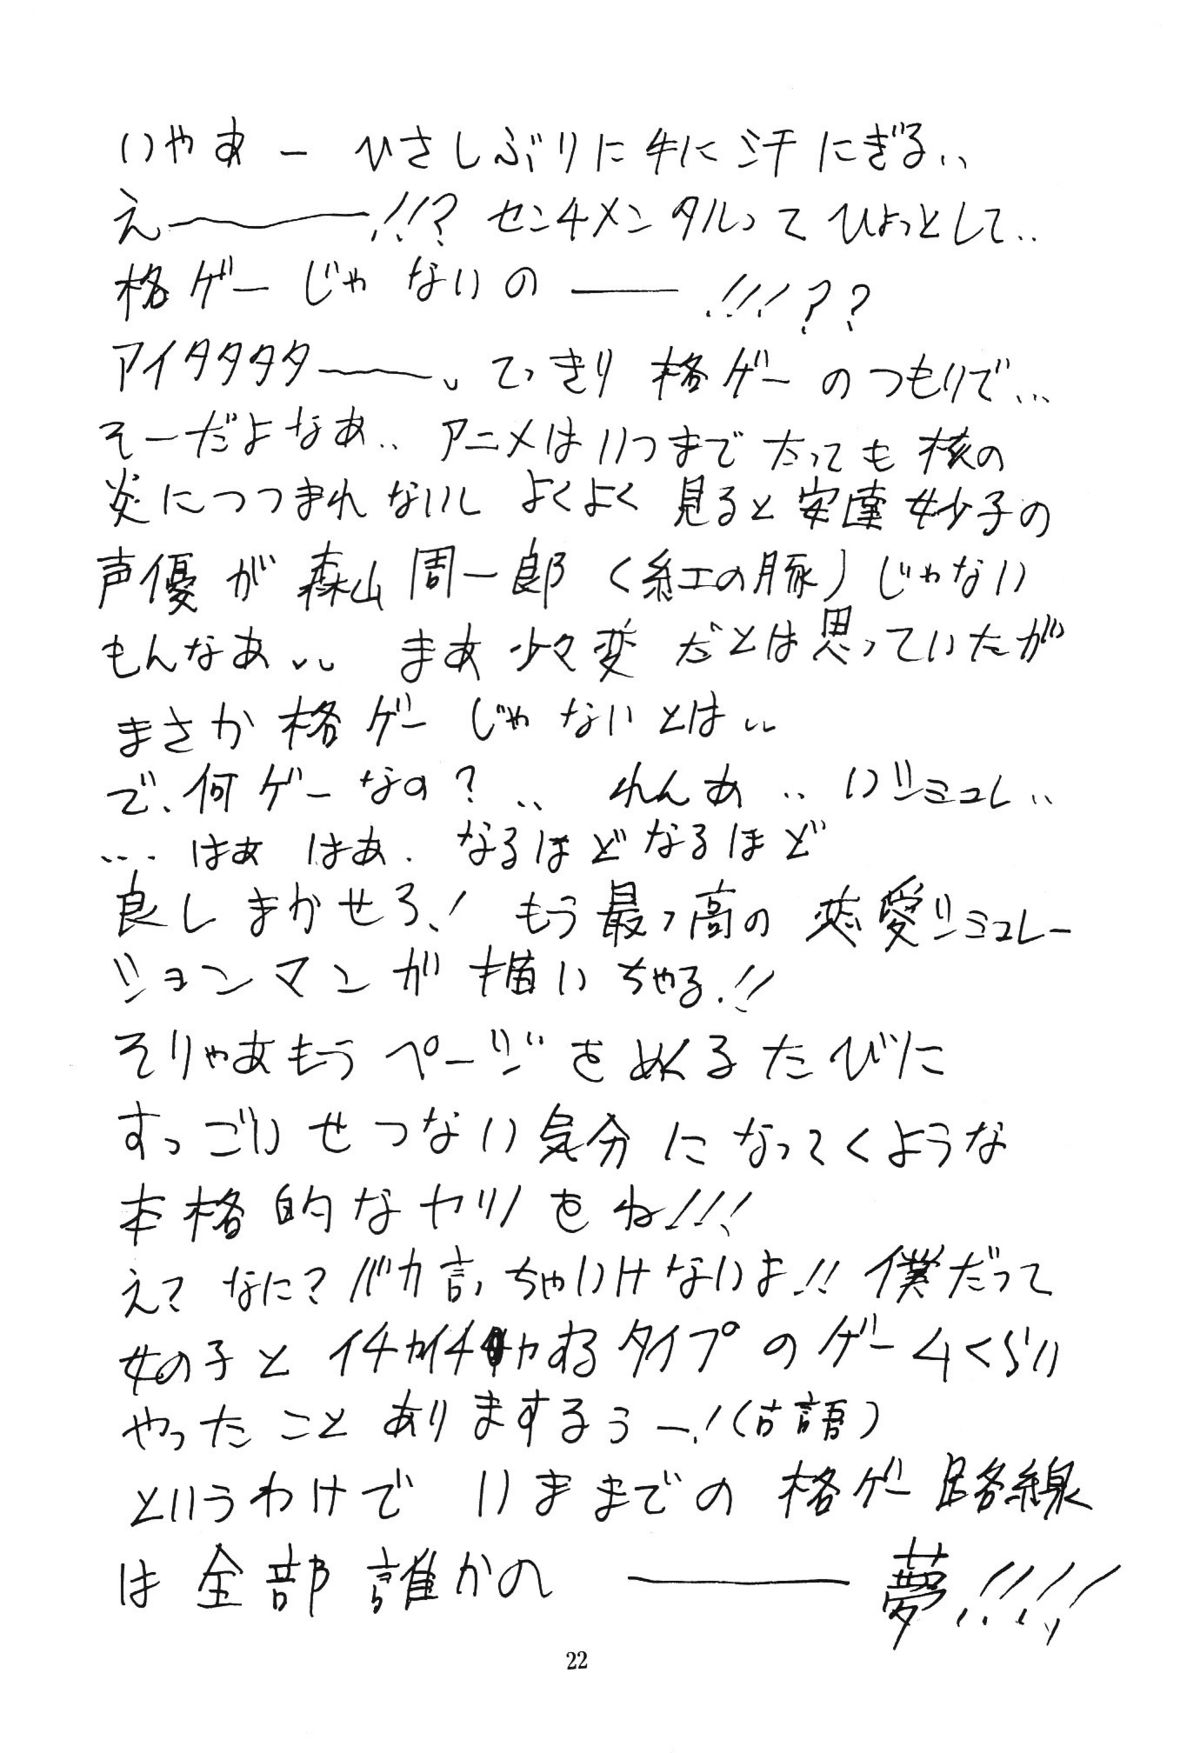 いやあー ひさしぶりに手に汗にぎる..
え――――!!? センチメンタルってひょっとして..
格ゲーじゃないの――!!!??
アイタタタタ――。てっきり格ゲーのつもりで...
そーだよなあ.. アニメはいつまでたっても核の
炎につつまれないし よくよく見ると安達妙子の
声優が森山周一郎(紅の豚)じゃない
もんなあ.. まあ少々変だとは思っていたが
まさか格ゲーじゃないとは..
で、何ゲーなの?.. れんあ..いシミュレ..
... はぁ はあ. なるほどなるほど
良しまかせろ! もう最っ高の恋愛シミュレー
ションマンガ描いちゃる!!
そりゃあもうページをめくるたびに
すっごいせつない気分になってくような
本格的なヤツをね!!!
え? なに? バカ言っちゃいけないよ!! 僕だって
女の子とイチャイチャするタイプのゲームくらい
やったことありまするぅー!(古語)
というわけで いままでの格ゲー路線
は全部誰かの ――――夢!!!!
22